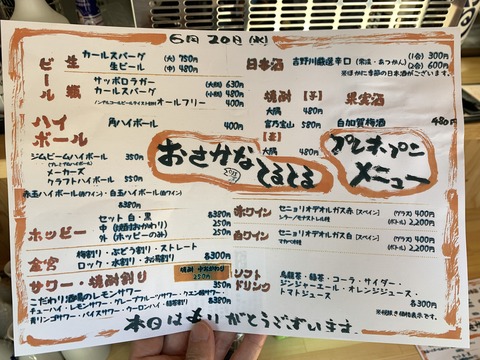 6月20日(水)
ビール
生 カールスバーグ (大) 750円
生ビール (中) 480円
瓶 サッポロラガー (大瓶) 630円
カールスバーグ (小瓶) 480円
ノンアルコールビールテイスト飲料 オールフリー 400円
ハイボール
角ハイボール 400円
ジムビームハイボール 350円
メーカーズクラフトハイボール 550円
赤玉ハイボール(赤ワイン)・白玉ハイボール(白ワイン)
各380円
ホッピー
セット 白・黒 各380円
中 (焼酎おかわり) 各250円
外 (ホッピーのみ)
金宮
梅割り・ぶどう割り・ストレート
ロック・水割り・お湯割り 各300円
サワー・焼酎割り
焼酎 中おかわり 250円
こだわり酒場のレモンサワー 350円
チューハイ・レモンサワー・グレープフルーツサワー・クエン酸サワー
青リンゴサワー・バイスサワー・ウーロンハイ・緑茶割り 各380円
日本酒
吉野川厳選辛口 (常温・あつかん) (1合) 300円
(2合) 600円
※ほかに季節の日本酒がございます。
焼酎
【芋】
大隅 480円
富乃宝山 580円
【麦】
大隅 480円
果実酒
白加賀梅酒 480円
おさかな
てるてる
プレオープン
メニュー
赤ワイン
セニョリオデオルガス赤 [スペイン] (グラス) 400円
(ボトル) 2,200円
白ワイン
セニョリオデオルガス白 [スペイン] (グラス) 400円
マカベオ種 (ボトル) 2,200円
ソフトドリンク
烏龍茶・緑茶・コーラ・サイダー・
ジンジャーエール・オレンジジュース・
トマトジュース 各300円
※税抜き価格表示です。
本日はありがとうございます。